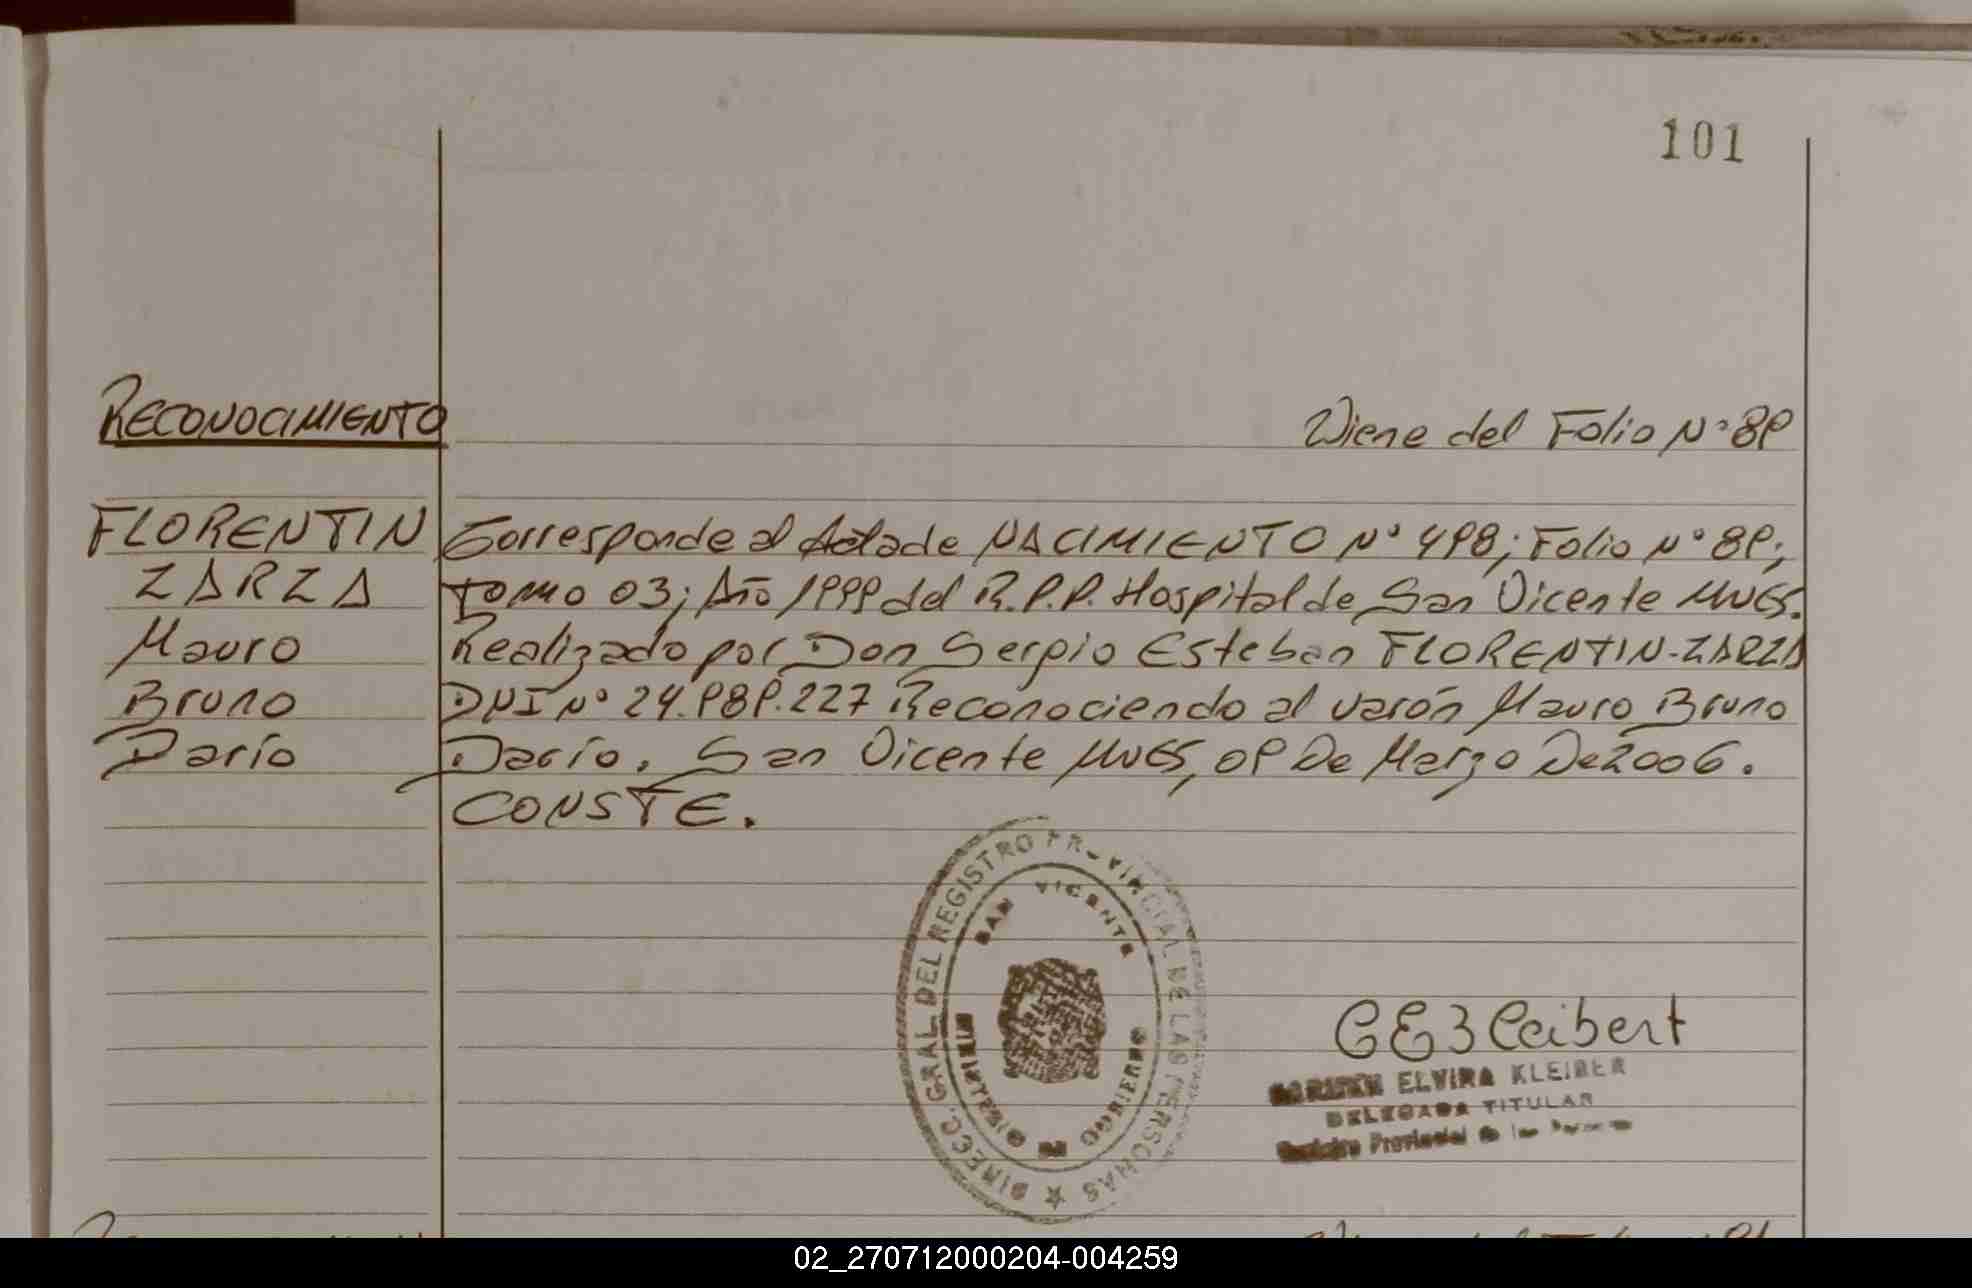 101
RECONOCIMIENTO
Viene del Folio N° 89
FLORENTIN
ZARZA
Mauro
Bruno
Darío
Corresponde al Acta de NACIMIENTO N° 498; Folio N° 89;
Tomo 03; Año 1999 del R.P.P. Hospital de San Vicente MNES.
Realizado por Don Sergio Esteban FLORENTIN-ZARZA
DNI N° 24.989.227 Reconociendo al varón Mauro Bruno
Darío. San Vicente MNES, 09 De Marzo De 2006.
CONSTE.
DIRECC. GRAL. DEL REGISTRO PROVINCIAL DE LAS PERSONAS
SAN VICENTE
MINISTERIO DE GOBIERNO
ELVIRA KLEIBER
DELEGADA TITULAR
Registro Provincial de las Personas
02_270712000204-004259